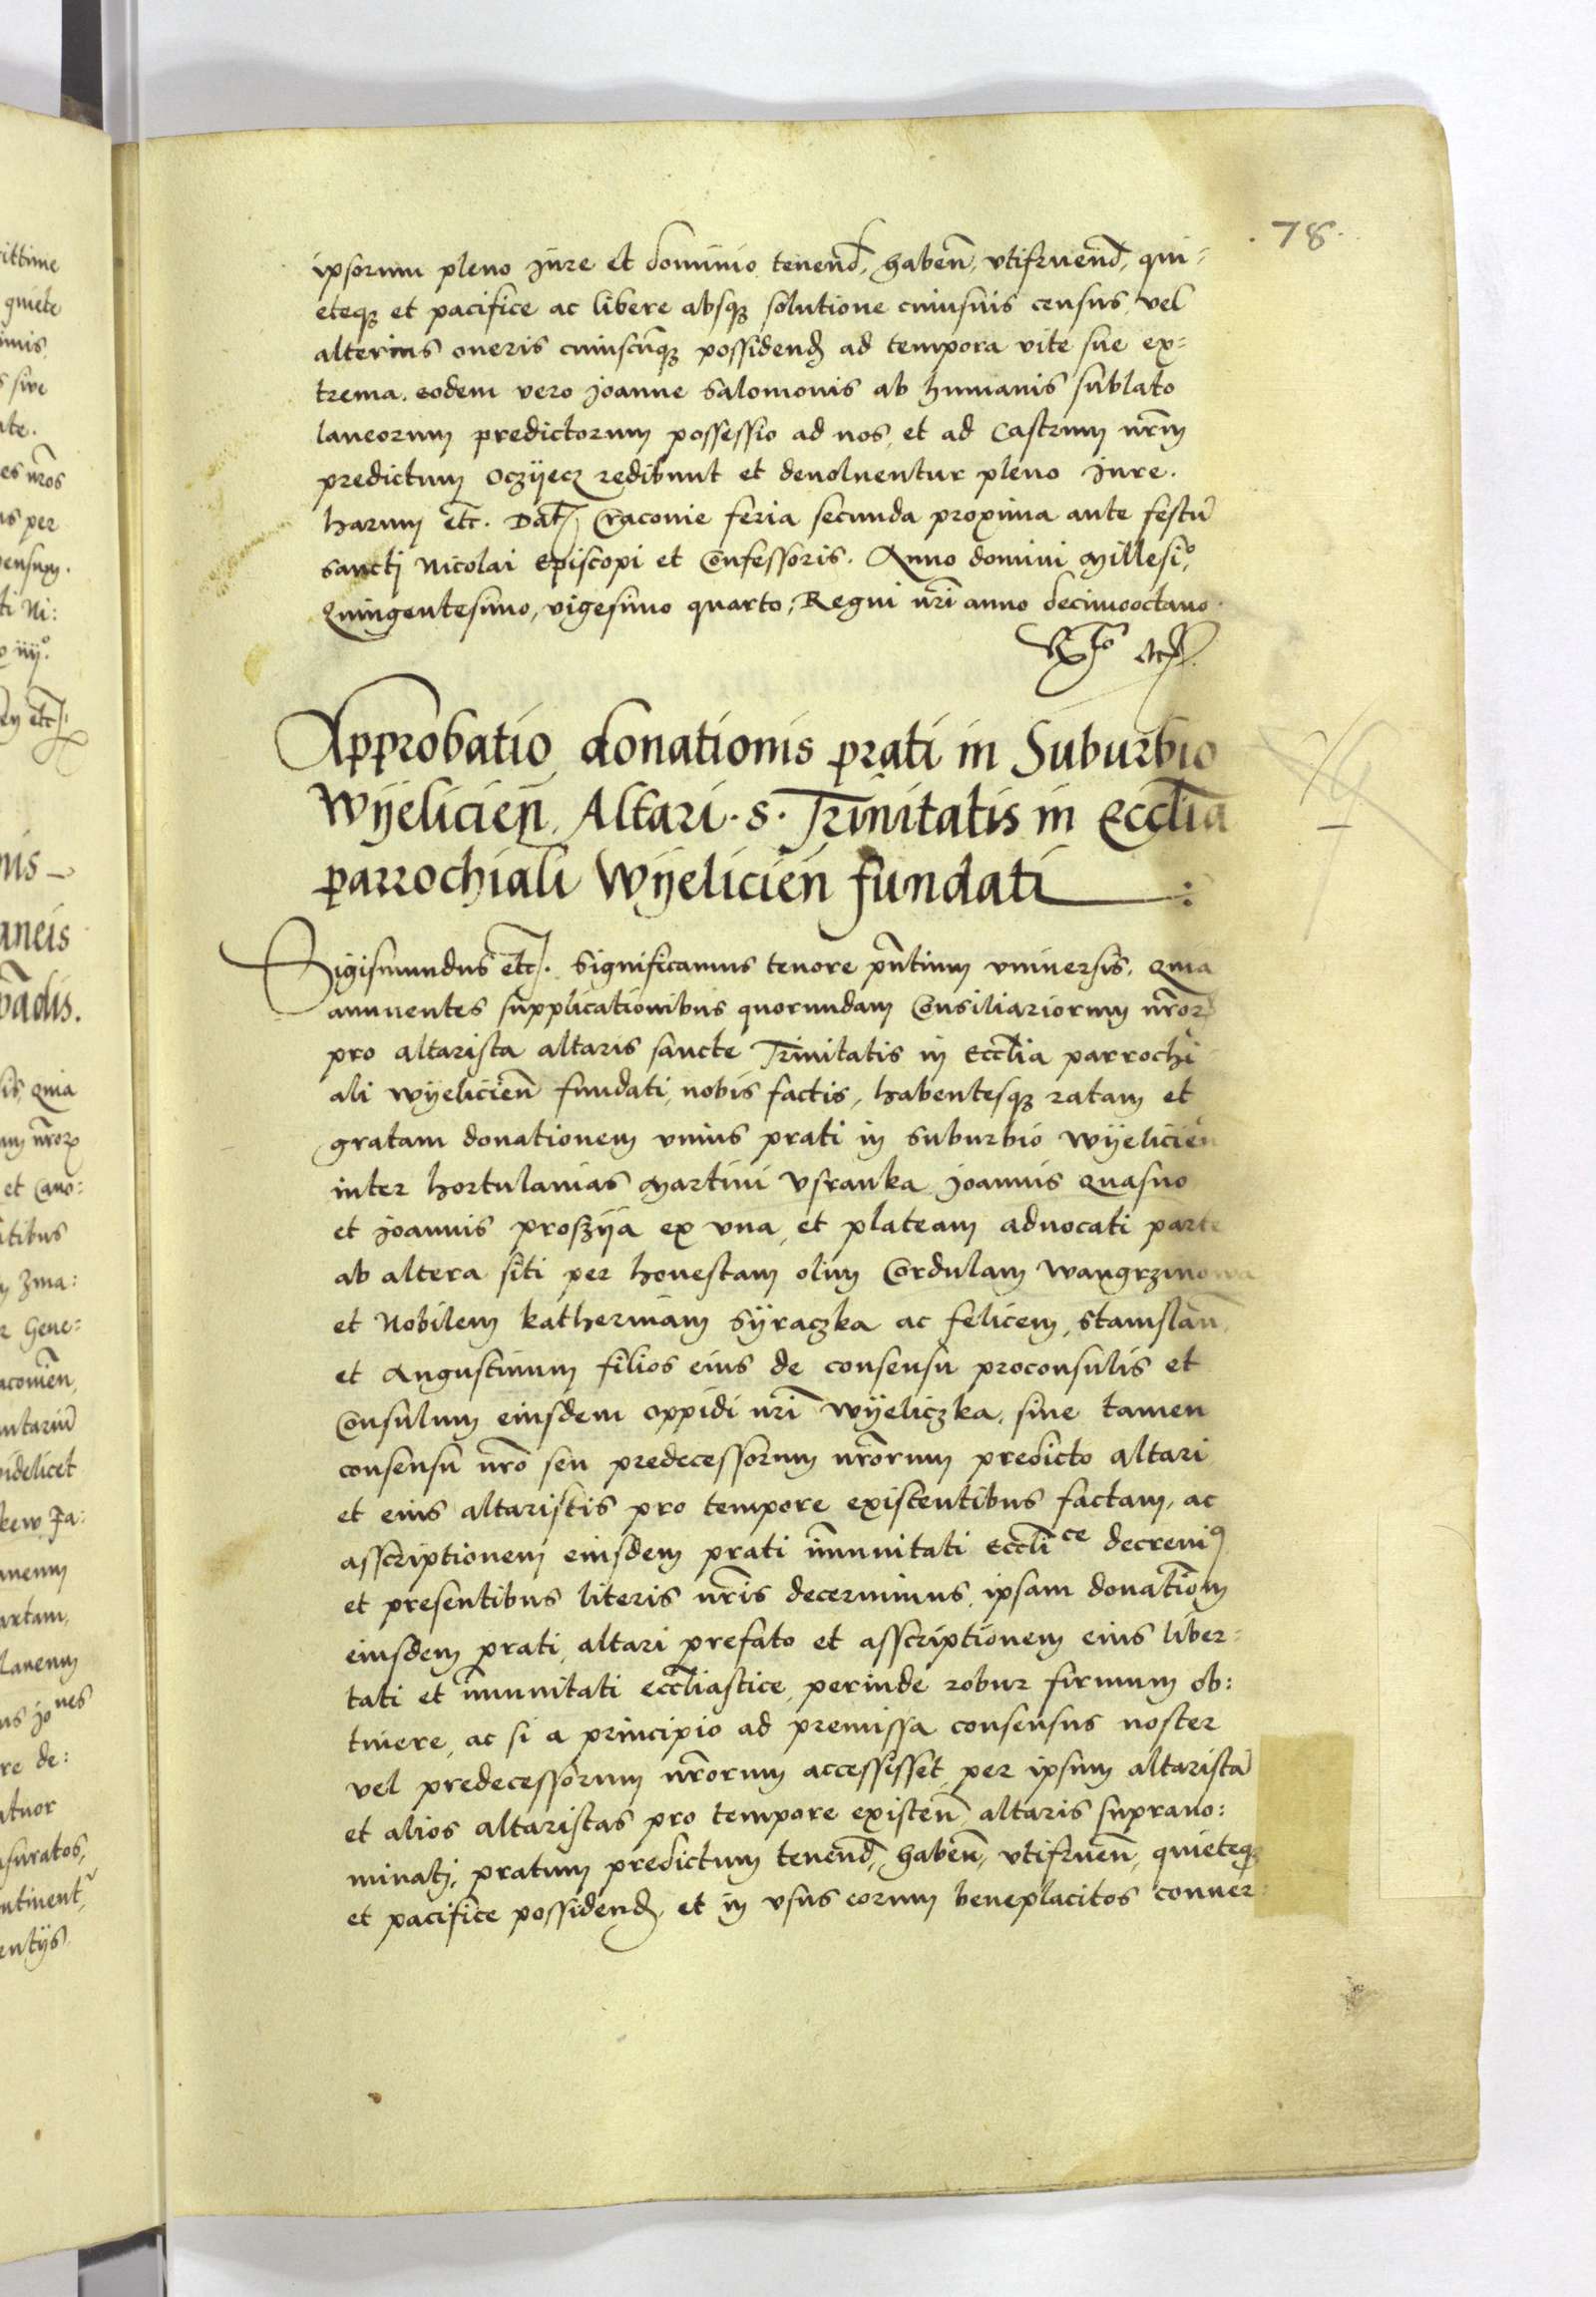 78
ipsorum pleno Jure et dominio tenend̄, haben̄, vtifruend̄, qui-
eteqȝ et pacifice ac libere absqȝ solutione cuiusuis census vel
alterius oneris cuiuscūqȝ possidendȝ ad tempora vite sue ex=
trema. eodem vero Joanne Salomonis ab humanis sublato
laneorum predictorum possessio ad nos, et ad Castrum nr̄m
predictum Oczÿecz redibunt et deuoluentur pleno Jure.
Harum etc. Dat̄ Cracouie feria secunda proxima ante festū
sancti Nicolai Episcopi et Confessoris. Anno domini Millesiº,
Quingentesimo, vigesimo quarto, Regni nr̄i anno decimooctauo.
Approbatio donationis prati in Suburbio
Wÿelicień Altari S. Trinitatis in Eccl̄ia
parrochiali Wÿelicień fundati :
Sigismundus etc. Significamus tenore pn̄tium vniuersis. Quia
annuentes supplicationibus quorundam Consiliariorum nr̄oꝝ
pro altarista altaris sancte Trinitatis in Eccl̄ia parrochi
ali Wÿelicien̄ fundati, nobis factis, habentesqȝ ratam et
gratam donationem vnius prati in suburbio Wÿelicien̄
inter hortulanias Martini Vsranka Joannis Quasno
et Joannis Proszÿa ex vna, et plateam aduocati parte
ab altera siti per honestam olim Cordulam Wangrzinowa
et Nobilem Katherinam Sÿraczka ac felicem, Stanislaū,
et Augustinum filios eius de consensu proconsulis et
Consulum eiusdem oppidi nr̄i Wÿeliczka, sine tamen
consensu nr̄o seu predecessorum nr̄orum predicto altari
et eius altaristis pro tempore existentibus factam, ac
asscriptionem eiusdem prati im̄unitati Eccl̄ice decreuiꝰ
et presentibus literis nr̄is decernimus, ipsam donatiōm
eiusdem prati, altari prefato et asscriptionem eius liber=
tati et im̄unitati eccl̄iastice, perinde robur firmum ob:
tinere, ac si a principio ad premissa consensus noster
vel predecessorum nr̄orum accessisset, per ipsum altaristā
et alios altaristas pro tempore existen̄ altaris suprano:
minati, pratum predictum tenend̄, haben̄, vtifruen̄, quieteqȝ
et pacifice possidendȝ, et in vsus eorum beneplacitos conuer: